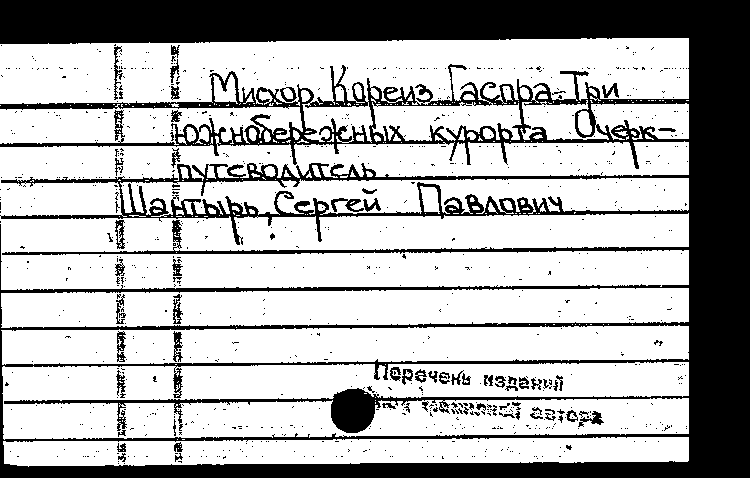 Мисхор. Кореиз Гаспра. Три
южнобережных курорта Очерк-
путеводитель.
Шантырь, Сергей Павлович
Перечень изданий
под фамилией автора